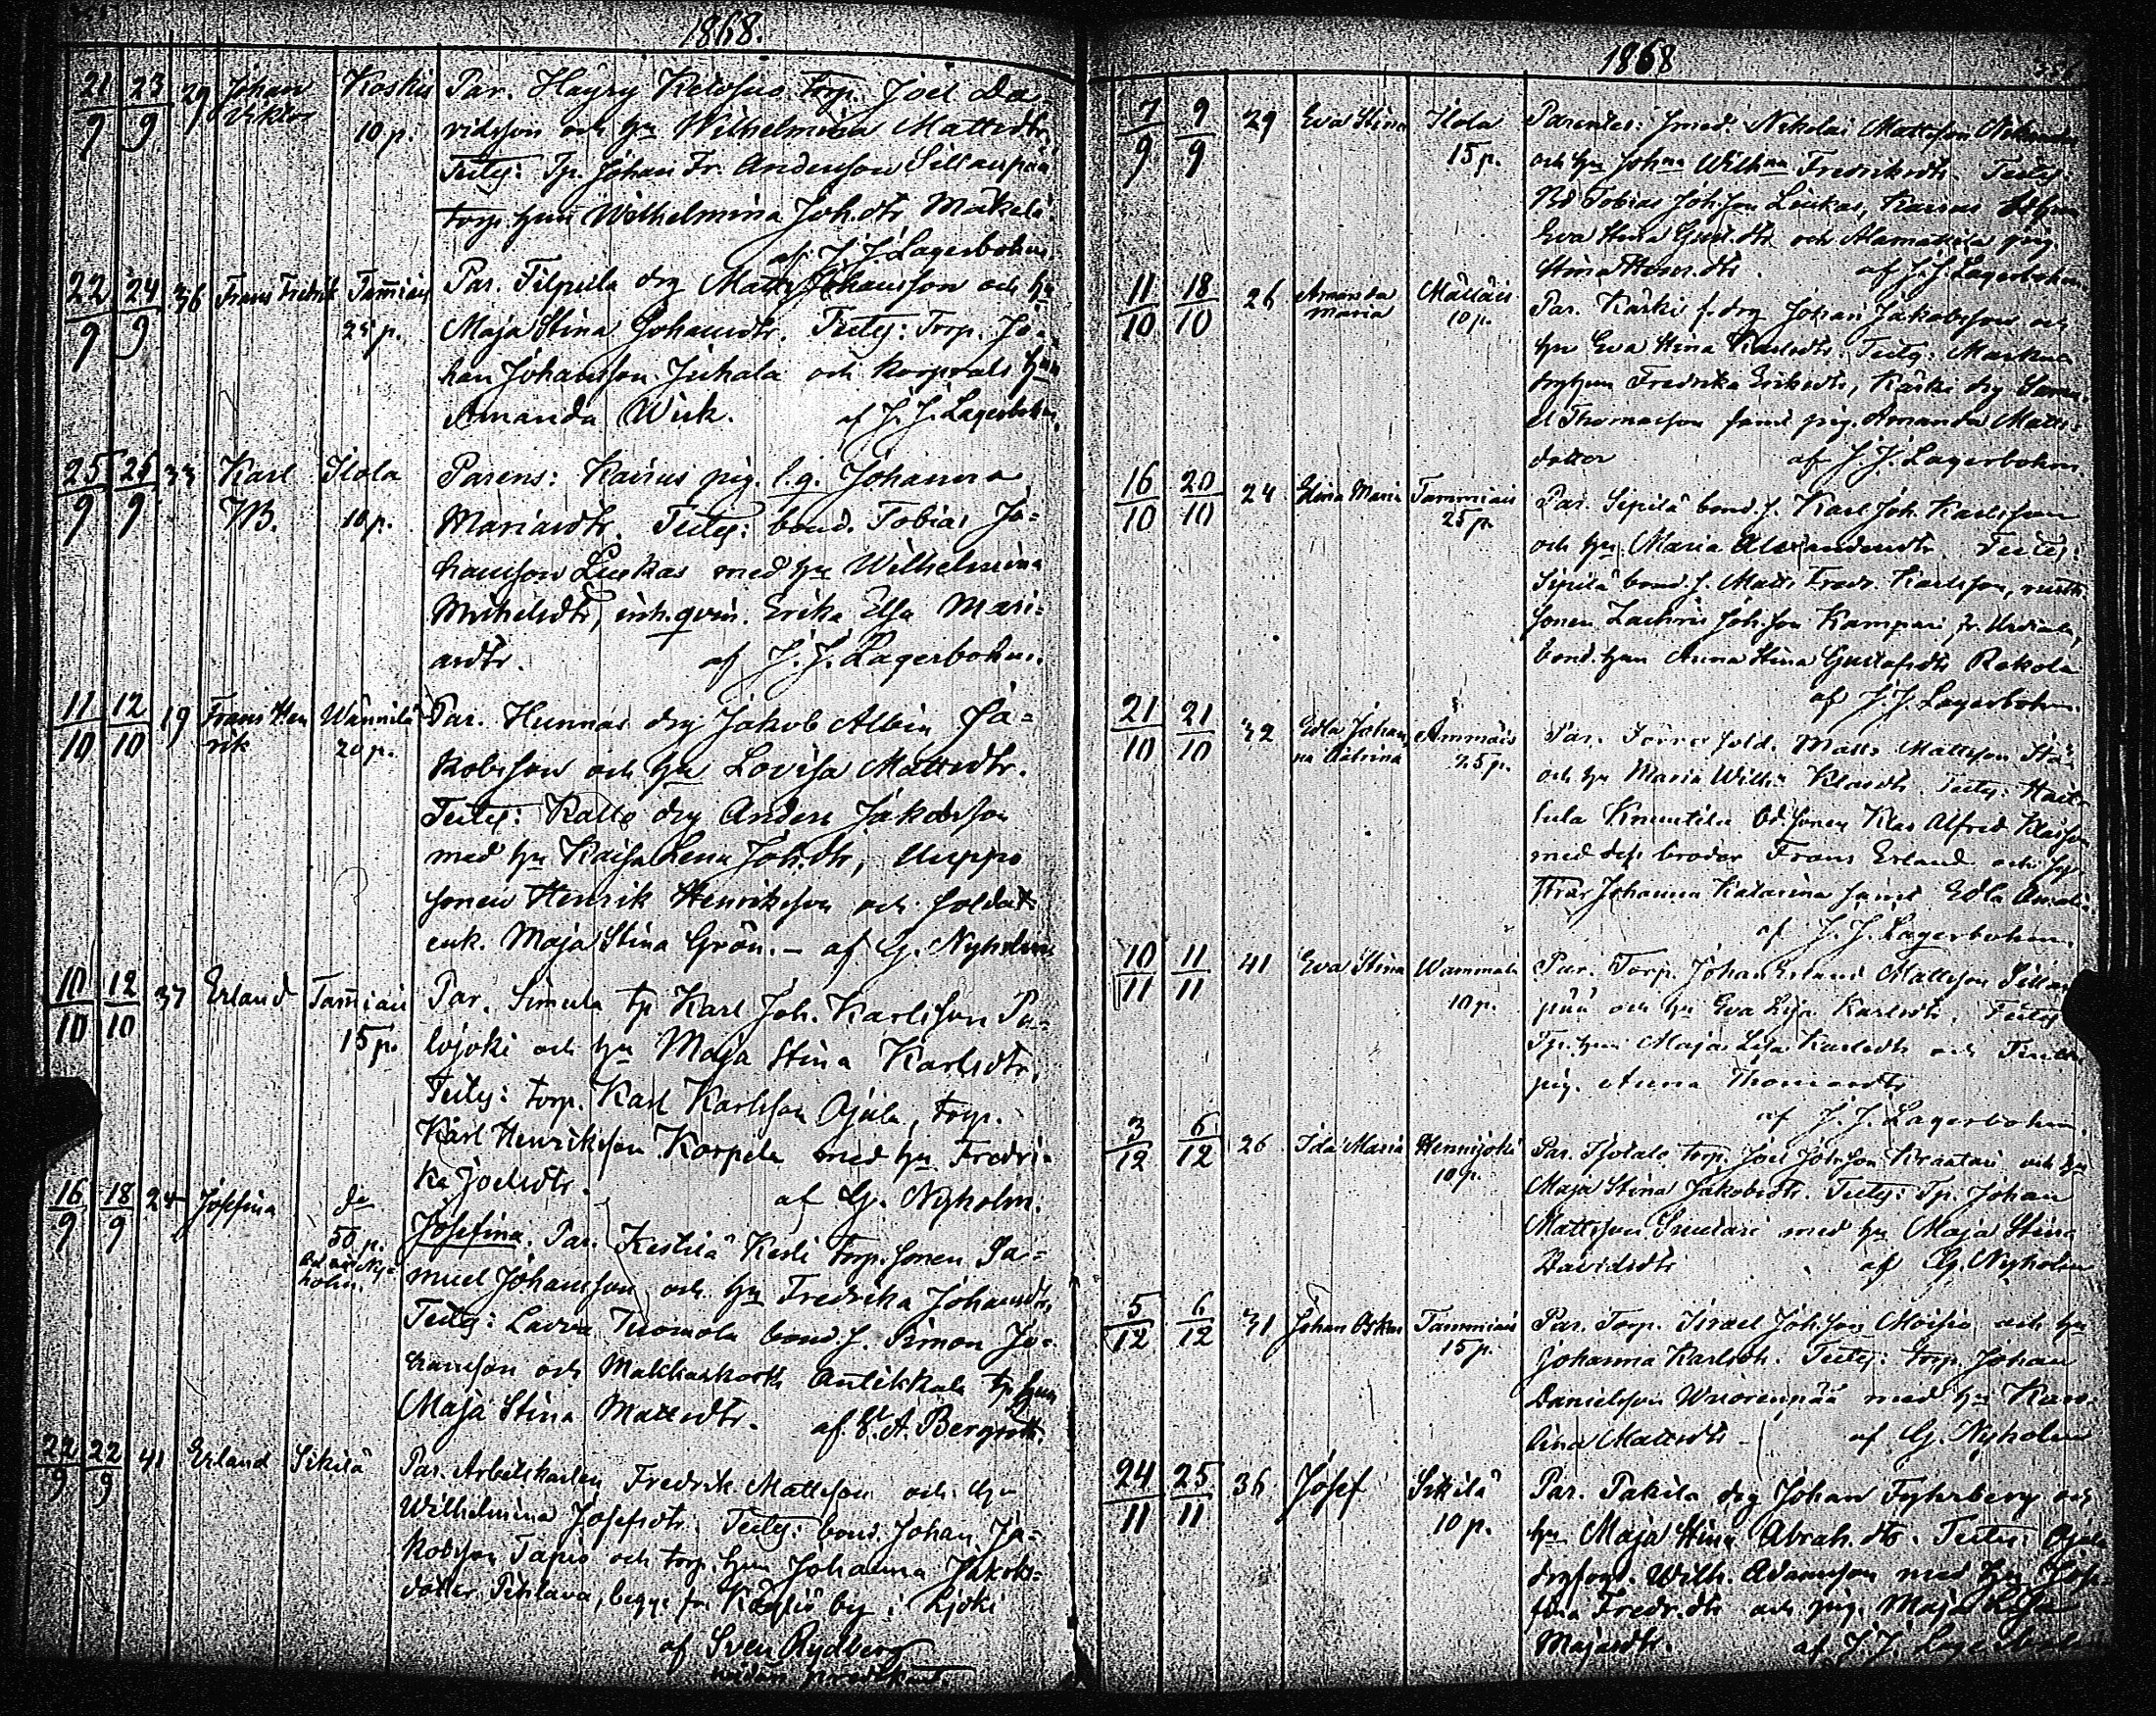 1868.
21/9 23/9 29 Johan Viktor Koskis 10 p. Par. Häyry torp. Joel Da=
vidsson och hu Wilhelmina Mattsdtr,
Testes: Tp. Johan Fr. Andersson Sillanpää
torp. hun Wilhelmina Joh.dtr Mäkelä.
af J. J. Lagerbohm.
22/9 24/9 36 Frans Fredrik Tam̄iais 25 p. Par. Filpula drg Matts Johansson och hu
Maja Stina Johansdtr. Testes: Torp. Jo=
han Johansson Juhala och korprals hun
Amanda Wiik. af J. J. Lagerbohm.
25/9 26/9 33 Karl Ilola 10 p. Parens: Kairus pig. l.g. Johanna
Mariasdtr. Testes: bond. Tobias Jo=
hansson Luukas med hu Wilhelmina
Michelsdtr, inh. qvin. Erika Elsa Mari=
asdtr. af J. J. Lagerbohm.
11/10 12/10 19 Frans Hen
rik Wännilä 20 p. Par. Hunnas drg Jakob Albin Ja=
kobsson och hu Lovisa Mattsdtr.
Testes: Kallo drg Anders Jakobsson
med hu Kaisa Lena Joh.dtr, Uuppo
sonen Henrik Henriksson och soldats
enk. Maja Stina Grön. – af G. Nyholm
10/10 12/10 37 Erland Tam̄iais 15 p. Par. Simula tp Karl Joh. Karlsson Pa=
lojoki och hu Maja Stina Karlsdtr,
Testes: torp. Karl Karlsson Ojala, torp.
Karl Henriksson Korpela med hu Fredri=
ka Joelsdtr. af G. Nyholm.
16/9 18/9 24 Josefina do 50 p. Josefina. Par. Kestilä Kesti torp. sonen Sa=
muel Johansson och hu Fredrika Johansdtr,
Testes: Lavva Tuomola bond. s. Simon Jo=
hansson och Makkarkorki Anlikkala tp hun
Maja Stina Mattsdtr. af E. A. Bergroth.
22/9 22/9 41 Erland Sikilä Par. Arbetskarlen Fredrik Mattsson och hu
Wilhelmina Josefsdtr. Testes: bond. Johan Ja=
kobsson Tapio och torp. hun Johanna Jakobs=
dotter Pihlava, begge fr. by i Kjoki
af Sven Rydberg
1868
7/9 9/9 29 Eva Stina Ilola 15 p. Parentes: smed. Nikolai Mattsson
och hu Joh:na Wilh:na Fredriksdtr. Testes:
Bd Tobias Joh.son Luukas, Kairus
Eva Stina Gust.dtr och Alamattila pig.
Stina Henr.dtr. af J. J. Lagerbohm
11/10 18/10 26 Amanda
Maria Mällais 10 p. Par. Kärki f. drg Johan Jakobsson och
hu Eva Stina Karlsdtr. Testes: Markula
drghun Fredrika Eriksdtr, Kärki drg Samu=
el Thomasson samt pig. Amanda Matts=
dotter af J. J. Lagerbohm
16/10 20/10 24 Edina Maria Tammiais 25 p. Par. Sipilä bond. s. Karl Joh. Karlsson
och hu Maria Alexandersdtr. Testes:
Sipilä bond. s. Matts Fredr. Karlsson, rusth.
sonen Zachris Joh.son Kampari fr. Urdiala,
bond. hun Anna Stina Gustafsdtr Rekola
af J. J. Lagerbohm.
21/10 21/10 32 Edla Johan
na Katrina Ammais 25 p. Par. Förre sold. Matts Mattsson
och hu Maria Wilh:a Klasdtr. Testes:
Knuutila bd. sonen Klas Alfred Klasson
med dess broder Frans Erland och
Johanna Katarina samt Edla
af J. J. Lagerbohm.
10/11 11/11 41 Eva Stina Wammala 10 p. Par. Torp. Johan Erland Mattsson Sillan
pää och hu Eva Lisa Karlsdtr. Testes
Tp. hun Maja Lisa Karlsdtr och
pig. Anna Thomasdtr
af J. J. Lagerbohm.
3/12 6/12 26 Ida Maria Hennijoki 10 p. Par. Isotalo torp. Joel Joh.son Kraatari och hu
Maja Stina Jakobsdtr. Testes: Tp. Johan
Mattsson Suutari med hu Maja Stina
Davidsdtr af G. Nyholm
5/12 6/12 31 Johan Oskar Tammiais 15 p. Par. Torp. Israel Joh.son Moisio och hu
Johanna Karlsdtr. Testes: torp. Johan
Danielsson Wuorenpää med hu Karo
lina Mattsdtr – af G. Nyholm
24/11 25/11 36 Josef Sikilä 10 p. Par. Pakila drg Johan Fyhrberg och
hu Maja Stina Abrah.dtr. Testes: Ojala
drgfogd. Wilh. Adamsson med hu Jose=
fina Fredr.dtr och pig. Maja Lisa
Majasdtr. af J. J. Lagerbohm